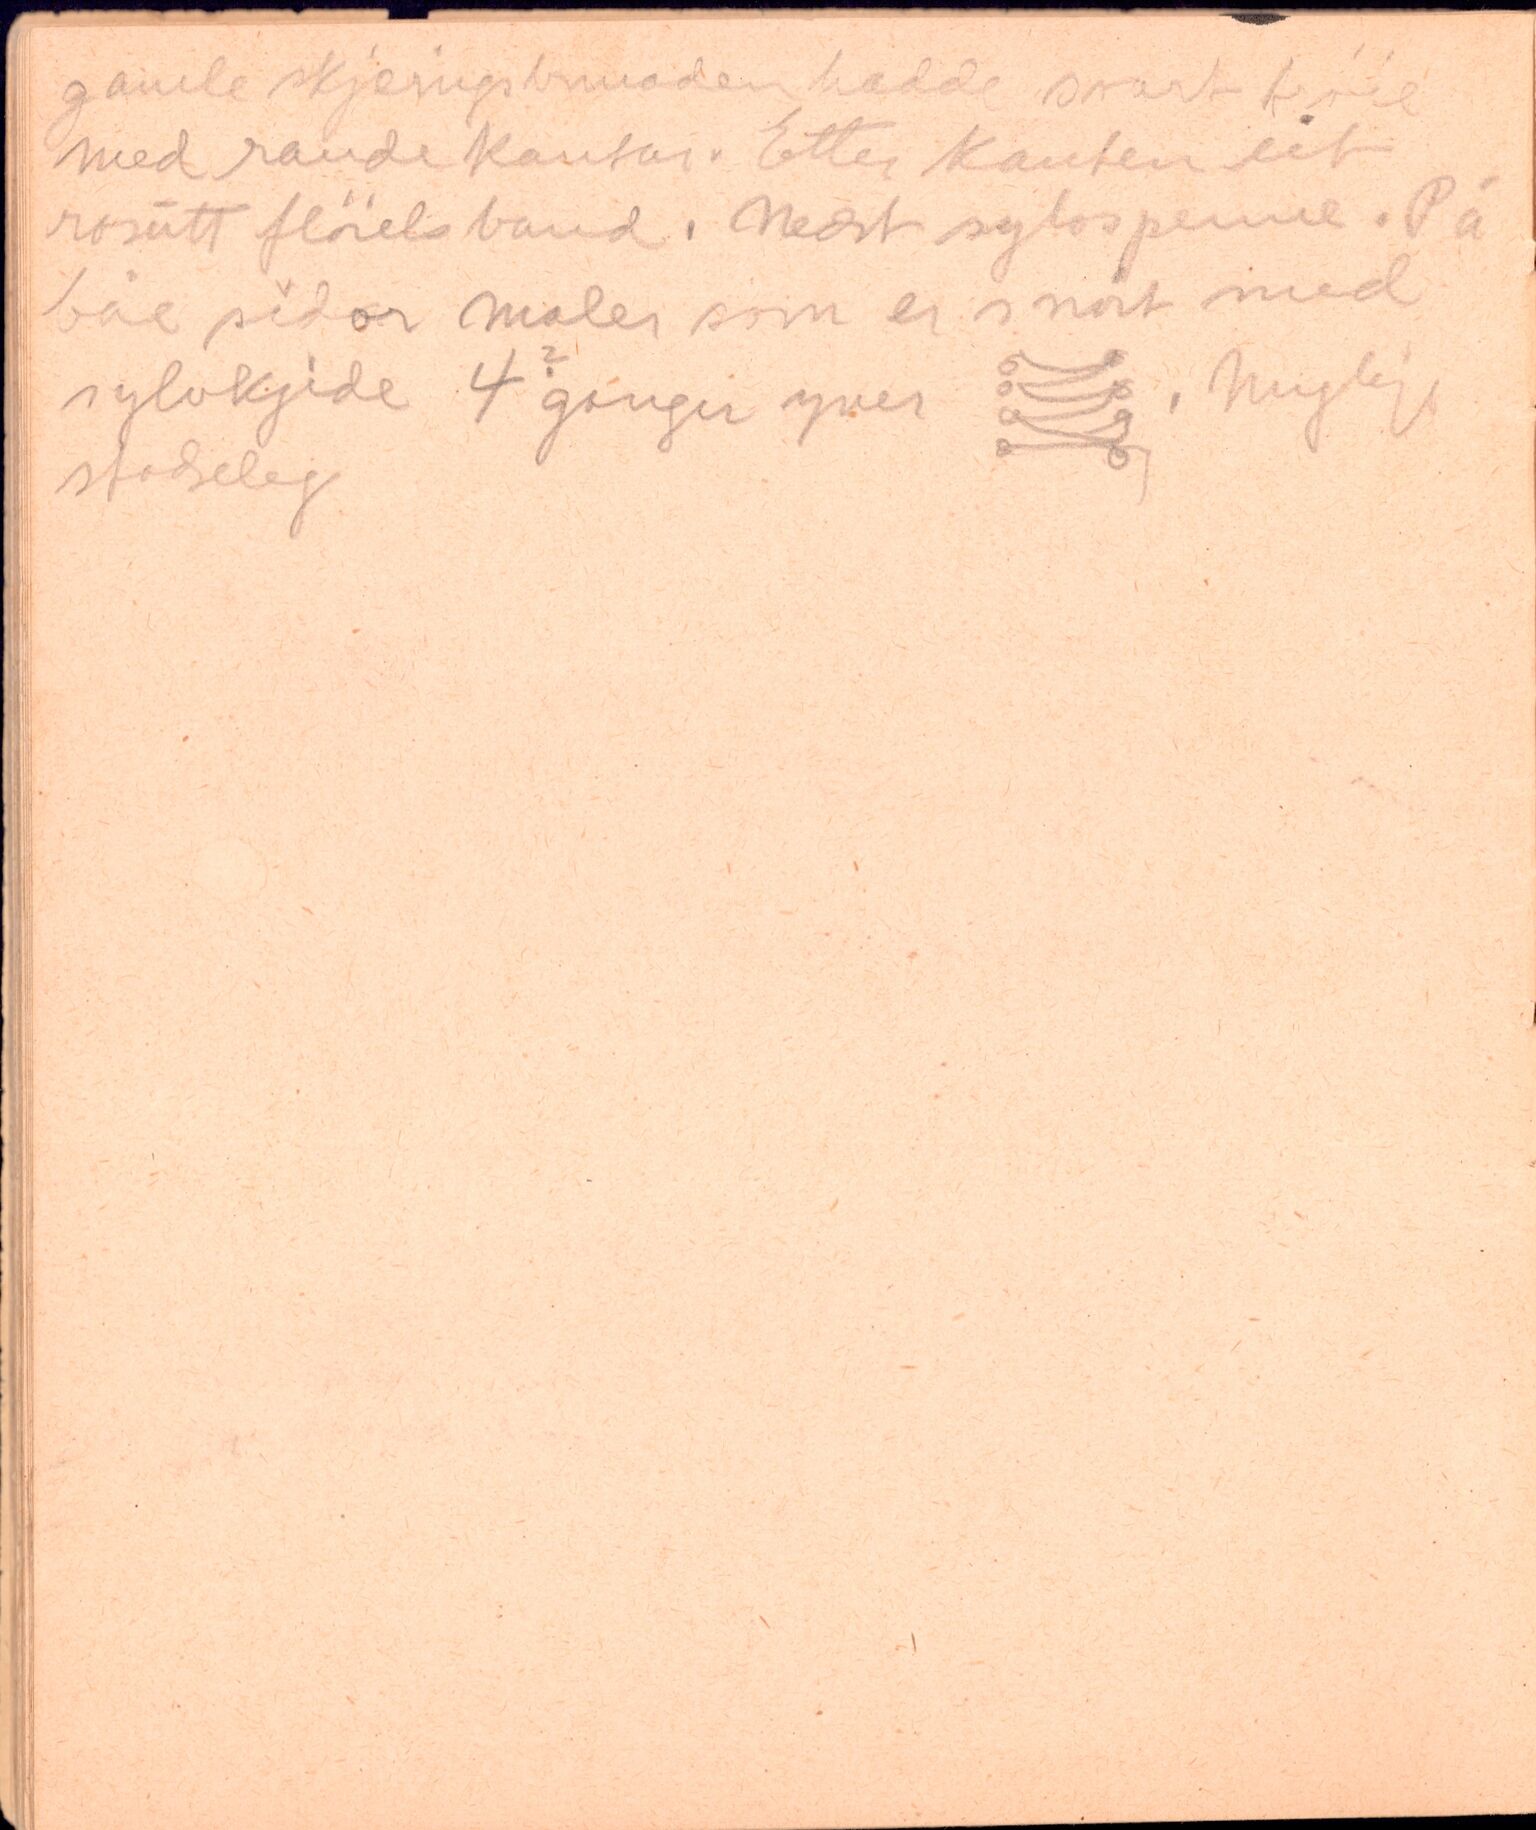 gamle skjeringsbunaden hadde svart trøie
med raude kantar. Etter kanten eit
rosutt fløiels band. Næst sylvspenne. På
båe sidor maler som er snørt med
sylvkjede 4 ? gonger yver .
staseleg